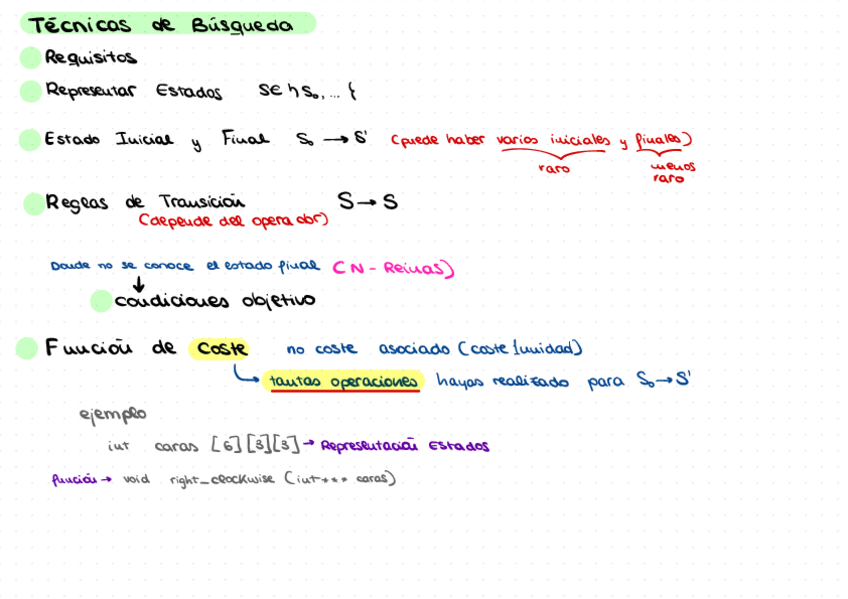 Técnicas de Búsqueda
Requisitos
Representar Estados S∈{S₀,...}
Estado Inicial y Final S₀ → S' (puede haber varios iniciales y finales)
raro menos raro
Reglas de Transición S → S
(depende del operador)
Donde no se conoce el estado final (N-Reinas)
↓
condiciones objetivo
Función de coste no coste asociado (coste 1unidad)
tantas operaciones hayas realizado para S₀→S'
ejemplo
int caras [6][3][3] → Representación Estados
función → void right_clockwise (int*** caras)